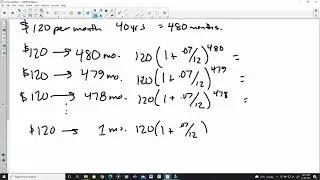 $120 per month 40 yrs = 480 months.
$120 → 480 mo. 120(1 + .07/12)^480 =
$120 → 479 mo. 120(1 + .07/12)^479 =
$120 → 478 mo. 120(1 + .07/12)^478 =
⋮
$120 → 1 mo. 120(1 + .07/12)